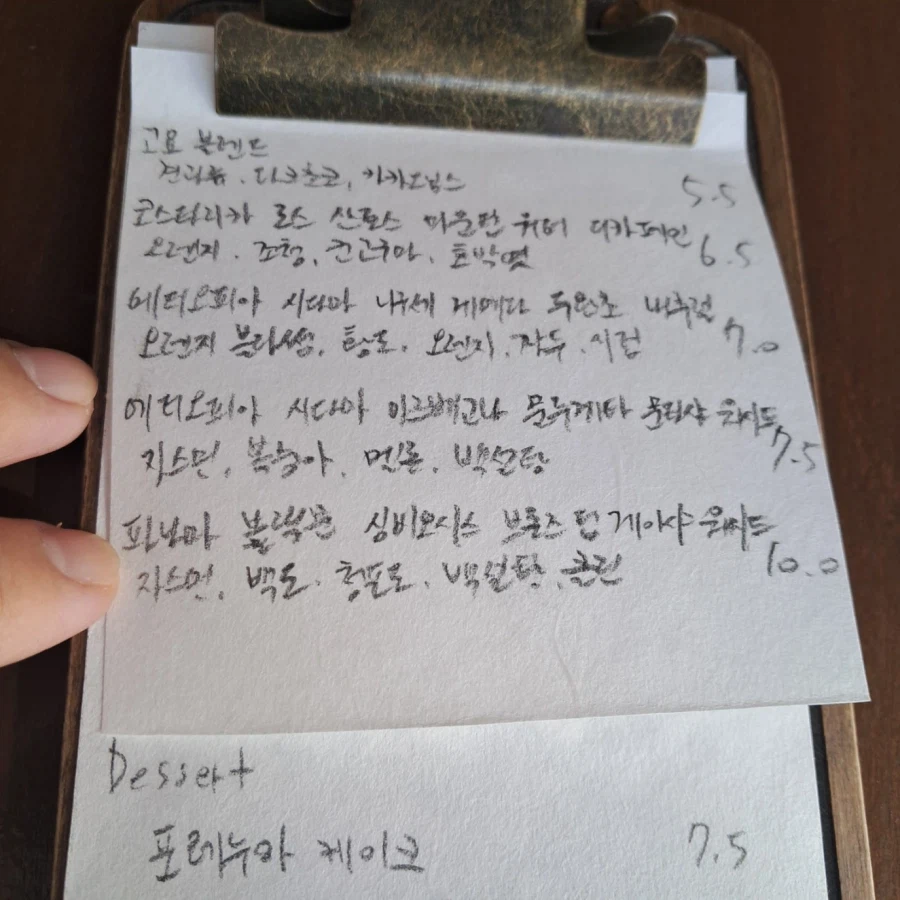 고요 블렌드
견과류. 다크초코, 카카오닙스
5.5
코스타리카 로스 산토스 마운틴 워터 디카페인
오렌지. 조청. 군고구마. 호박엿
6.5
에티오피아 시다마 내추럴
오렌지 블라썸. 황도. 오렌지. 자두. 시럽
7.0
에티오피아 시다마 워시드
자스민. 복숭아. 멜론. 백설탕
7.5
파나마 블랙문 심비오시스 브론즈 팁 게이샤 워시드
자스민. 백도. 청포도. 백설탕. 클린
10.0
Dessert
포레누아 케이크
7.5